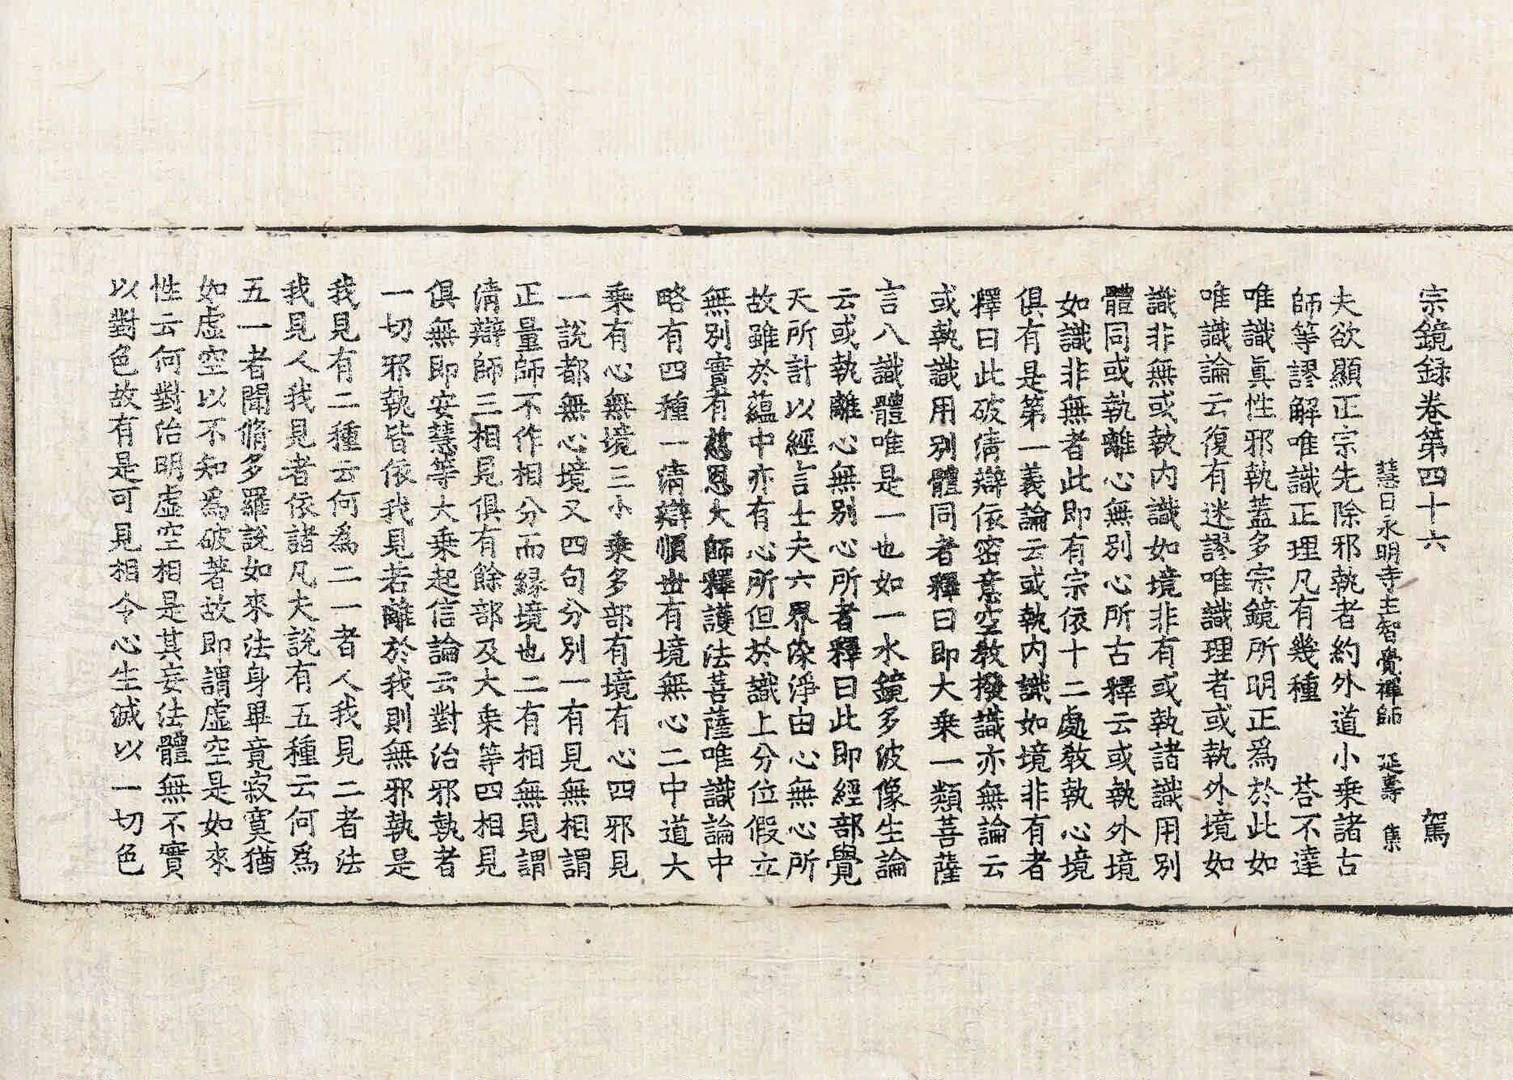 宗鏡録卷第四十六　駕
慧日永明寺主智覺禪師　延壽　集
夫欲顯正宗先除邪執者約外道小乗諸古
師等謬解唯識正理凡有幾種　荅不達
唯識真性邪執蓋多宗鏡所明正爲於此如
唯識論云復有迷謬唯識理者或執外境如
識非無或執内識如境非有或執諸識用別
體同或執離心無別心所古釋云或執外境
如識非無者此即有宗依十二處教執心境
俱有是第一義論云或執内識如境非有者
釋曰此破清辯依密意空教撥識亦無論云
或執識用別體同者釋曰即大乗一類菩薩
言八識體唯是一也如一水鏡多波像生論
云或執離心無別心所者釋曰此即經部覺
天所計以經言士夫六界染淨由心無心所
故雖於蘊中亦有心所但於識上分位假立
無別實有慈恩大師釋護法菩薩唯識論中
略有四種一清辯順世有境無心二中道大
乗有心無境三小乗多部有境有心四邪見
一說都無心境又四句分別一有見無相謂
正量師不作相分而縁境也二有相無見謂
清辯師三相見俱有餘部及大乗等四相見
俱無即安慧等大乗起信論云對治邪執者
一切邪執皆依我見若離於我則無邪執是
我見有二種云何爲二一者人我見二者法
我見人我見者依諸凡夫說有五種云何爲
五一者聞脩多羅說如來法身畢竟寂寞猶
如虛空以不知爲破著故即謂虛空是如來
性云何對治明虛空相是其妄法體無不實
以對色故有是可見相令心生滅以一切色